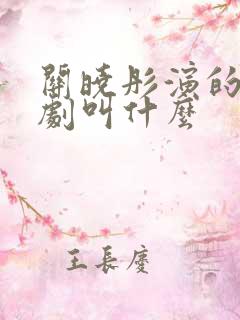 關曉彤演的
劇叫什麼
王長慶